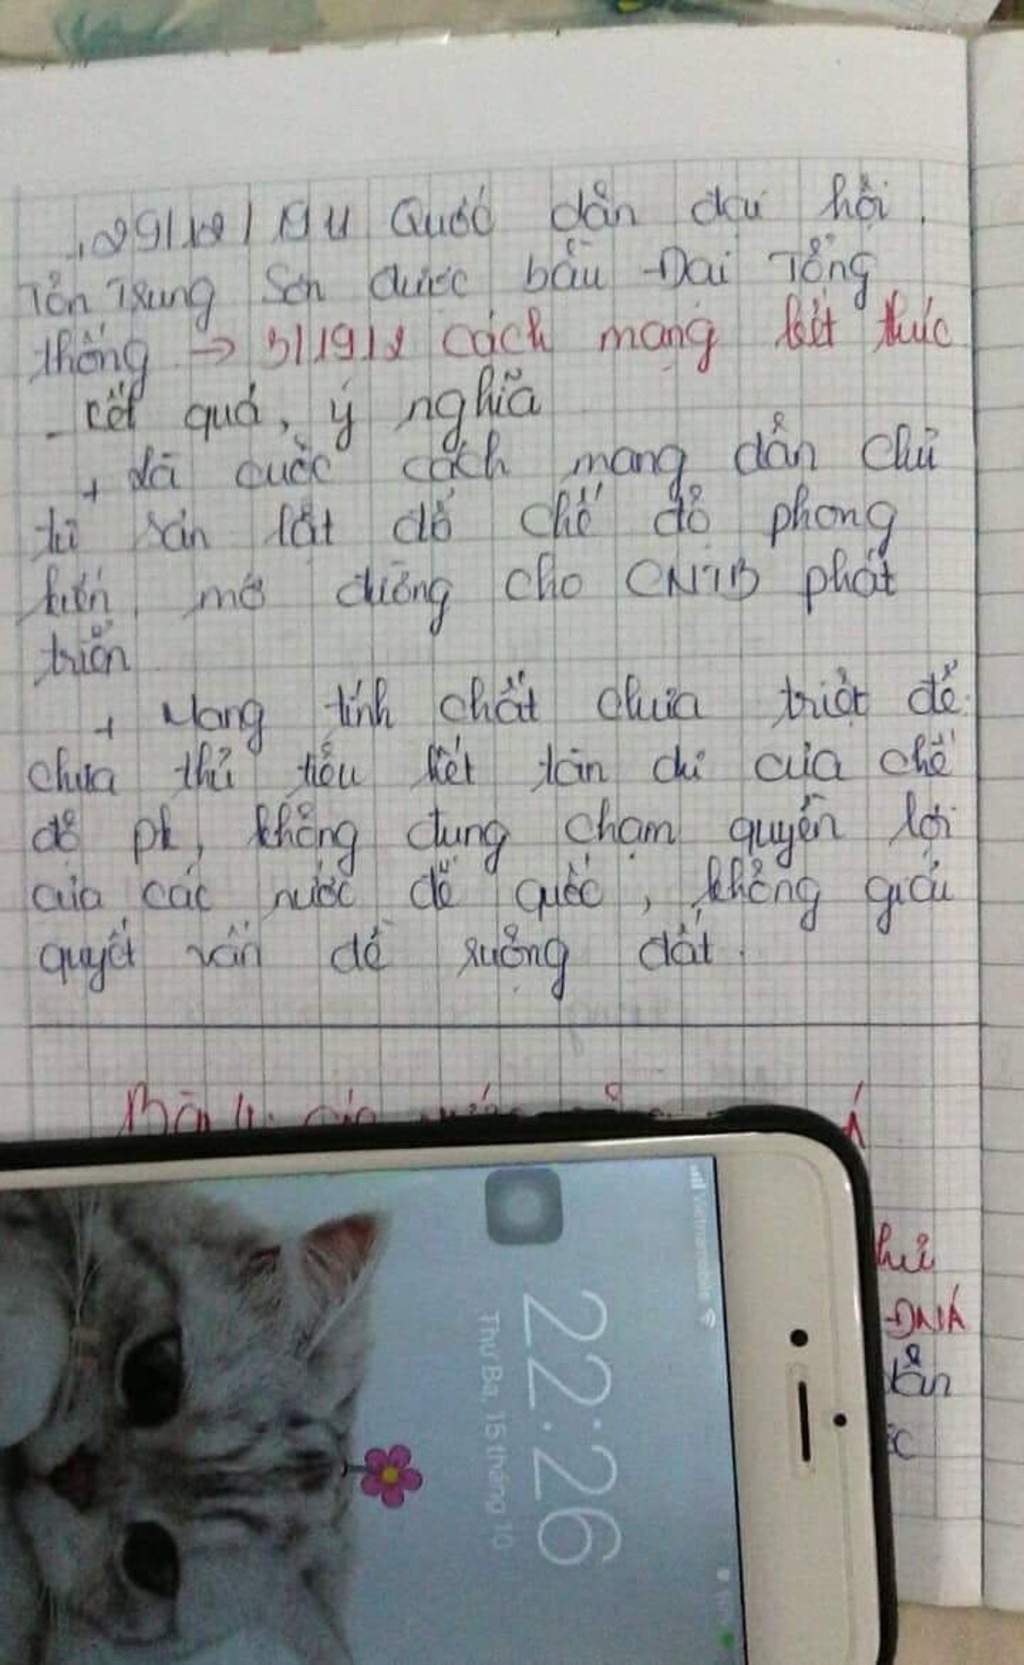 29/12/1911 Quốc dân đại hội.
Tôn Trung Sơn được bầu Đại Tổng
thống → 3/1912 cách mạng kết thúc
- Kết quả, ý nghĩa
+ Là cuộc cách mạng dân chủ
tư sản lật đổ chế độ phong
kiến, mở đường cho CNTB phát
triển
+ Mang tính chất chưa triệt để.
chưa thủ tiêu hết tàn dư của chế
độ pk, không đụng chạm quyền lợi
của các nước đế quốc, không giải
quyết vấn đề ruộng đất.
Bài 4: các nước
ĐNÁ
dân
Vietnamobile
22:26
Thứ Ba, 15 tháng 10